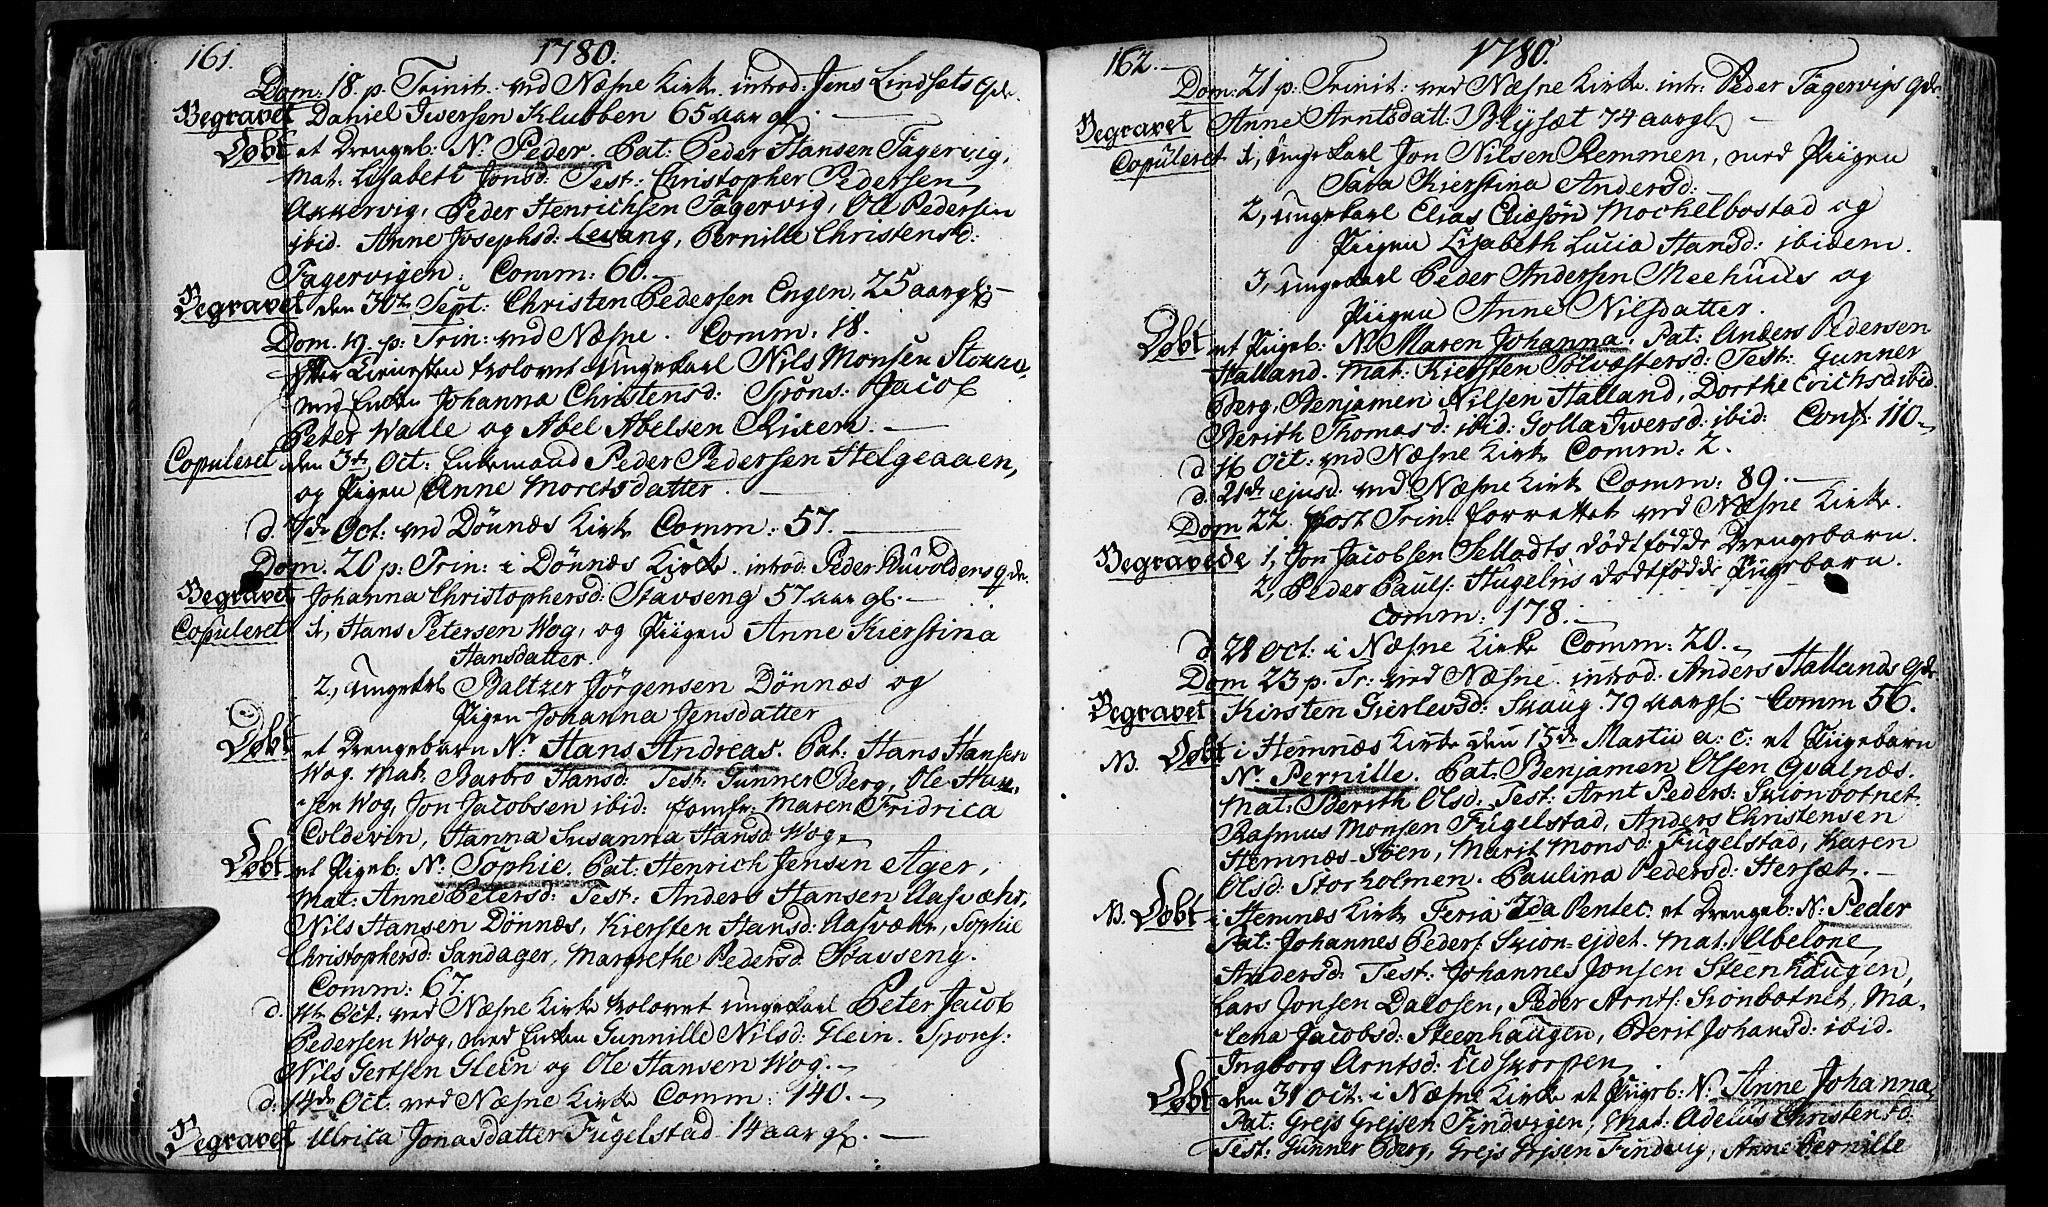 161.
1780.
Dom: 18. p. Trinit. ved Næsne Kirke. introd: Jens Lindsets qde.
Begravet Daniel Iwersen Klubben 65 aar gl.
Døbt et Drengeb: N. Peder. Pat: Peder Hansen Fagervig,
Mat: Lisabeth Jonsd: Test: Christopher Pedersen
Akkervig, Peder Henrichsen Fagervig, Ole Pedersen
ibid. Anne Josephsd: Levang, Pernille Christensd:
Fagervigen. Comm: 60.
Begravet den 30te Sept: Christen Pedersen Engen, 25 aar gl.
Dom. 19. p: Trin: ved Næsne. Comm: 18.
Efter trolovet Ungekarl Nils Monsen
med Enken Johanna Christensd: Spons: Jacob
Peter Walle og Abel Abelsen
Copuleret den 3de Oct: Enkemand Peder Pedersen Helgeaaen,
og Pigen Anne Moretsdatter.
d. 7de Oct: ved Dönnæs Kirke Comm: 57.
Dom. 20 p: Trin: i Dönnæs Kirke. introd: Peder qde.
Begravet Johanna Christophersd: Stavseng 57 aar gl.
Copuleret 1, Hans Petersen Wog, og Piigen Anne Kierstina
Hansdatter.
2, Ungekarl Baltzer Jörgensen Dönnæs og
Pigen Johanna Jensdatter
Døbt et Drengebarn N. Hans Andreas. Pat: Hans Hansen
Wog. Mat: Barbro Hansd: Test: Gunner Berg, Ole Han-
sen Wog, Jon Jacobsen ibid: Jomfr: Maren Fridrica
Coldevin, Hanna Susanna Hansd: Wog.
Døbt et Pigeb: N: Sophie. Pat: Henrich Jensen Ager,
Mat: Anne Petersd: Test: Anders Hansen Aasvær,
Nils Hansen Dönnæs, Kiersten Hansd: Aasvær, Sophie
Christophersd: Sandager, Margrethe Pedersd: Stavseng.
Comm: 67.
d. Oct: ved Næsne Kirke trolovet Ungekarl Peter Jacob
Pedersen Wog, med Enken Gunnille Nilsd: Glein. Spons:
Nils Gertsen Glein og Ole Hansen Wog.
d: 14de Oct: ved Næsne Kirke Comm: 140.
Begravet Ulrica Jonasdatter Fugelstad 14 aar gl.
162.
1780.
Dom: 21 p: Trinit: ved Næsne Kirke. intr: Peder Fagervigs qde.
Begravet Anne Arntsdatt: Blysæt 74 aar gl
Copuleret 1, Ungekarl Jon Nilsen Remmen, med Piigen
Sara Kierstina Andersd:
2, Ungekarl Elias Eliesön Mochelbostad og
Piigen Lisabeth Lucia Hansd: ibidem.
3, Ungekarl Peder Andersen Meehuus og
Piigen Anne Nilsdatter.
Døbt et Pigeb: N. Maren Johanna. Pat: Anders Pedersen
Halland. Mat: Kiersten Solvæstersd: Test: Gunner
Berg, Benjamen Nilsen Halland, Dorthe Erichsd ibid.
Berith Thomasd: ibid: Golla Iwersd: ibid: Conf. 110.
d. 16 Oct: ved Næsne Kirke Comm: 2.
d. 21de ejusd: ved Næsne Kirke Comm: 89.
Dom 22. post Trin: forrettet ved Næsne Kirke.
Begravede 1, Jon Jacobsen dödfödde Drengebarn.
2, Peder Pauls: Hugelns dödfödde Pigebarn.
Comm: 178.
d. 28 Oct: i Næsne Kirke Comm: 20.
Dom 23 p. Tr: ved Næsne. introd: Anders Hallands qde
Begravet Kirsten Gierlevsd: Skaug. 79 aar gl. Comm 56.
NB. Døbt i Hemnæs Kirke den 15de Martii a: c: et Piigebarn
N. Pernille. Pat: Benjamen Olsen Qvalnæs.
Mat: Berith Olsd: Test: Arnt Peders: Skionbotnet.
Rasmus Monsen Fugelstad, Anders Christensen
Hemnæs-Söen, Marit Monsd: Fugelstad, Karen
Olsd: Storholmen. Paulina Pedersd: Hersæt.
NB. Døbt i Hemnæs Kirke Feria 2da Pentec: et Drengeb: N: Peder
Pat: Johannes Peders: Skion-ejdet. Mat: Abelone
Andersd: Test: Johannes Jonsen Steenhaugen,
Lars Jonsen Dalosen, Peder Arnts: Skionbotnet, Ma-
lena Jacobsd: Steenhaugen, Berit Johansd: ibid.
Ingborg Arntsd: Udskorpen.
Døbt den 31 Oct: i Næsne Kirke et Piigeb: N. Anne Johanna
Pat: Grejs Grejsen Findvigen, Mat: Adelus Christensd:
Test: Gunner Berg, Grejs Grejsen Findvig, Anne Pernille